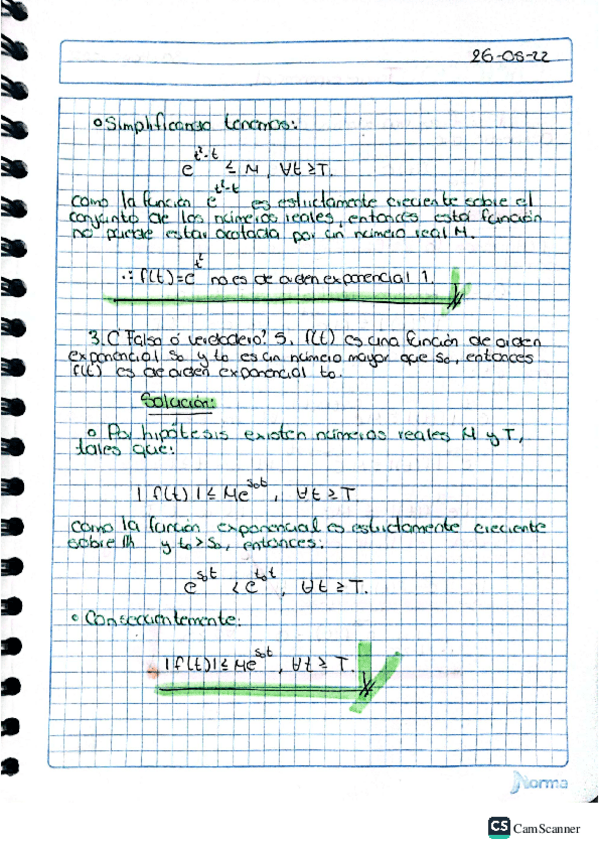 26-08-22
• Simplificando tenemos:
e^{t²-t} ≤ M, ∀t ≥ T.
como la función e^{t²-t} es estrictamente creciente sobre el
conjunto de los números reales, entonces esta función
no puede estar acotada por un número real M.
∴ f(t)=e^{t²} no es de orden exponencial 1.
3. ¿Falso ó verdadero? Si f(t) es una función de orden
exponencial s₀ y t₀ es un número mayor que s₀, entonces
f(t) es de orden exponencial t₀.
Solución:
• Por hipótesis existen números reales M y T,
tales que:
|f(t)| ≤ Me^{s₀t}, ∀t ≥ T.
como la función exponencial es estrictamente creciente
sobre ℝ y t₀ > s₀, entonces:
e^{s₀t} < e^{t₀t}, ∀t ≥ T.
• Consecuentemente:
|f(t)| ≤ Me^{s₀t}, ∀t ≥ T.
Norma
CS CamScanner